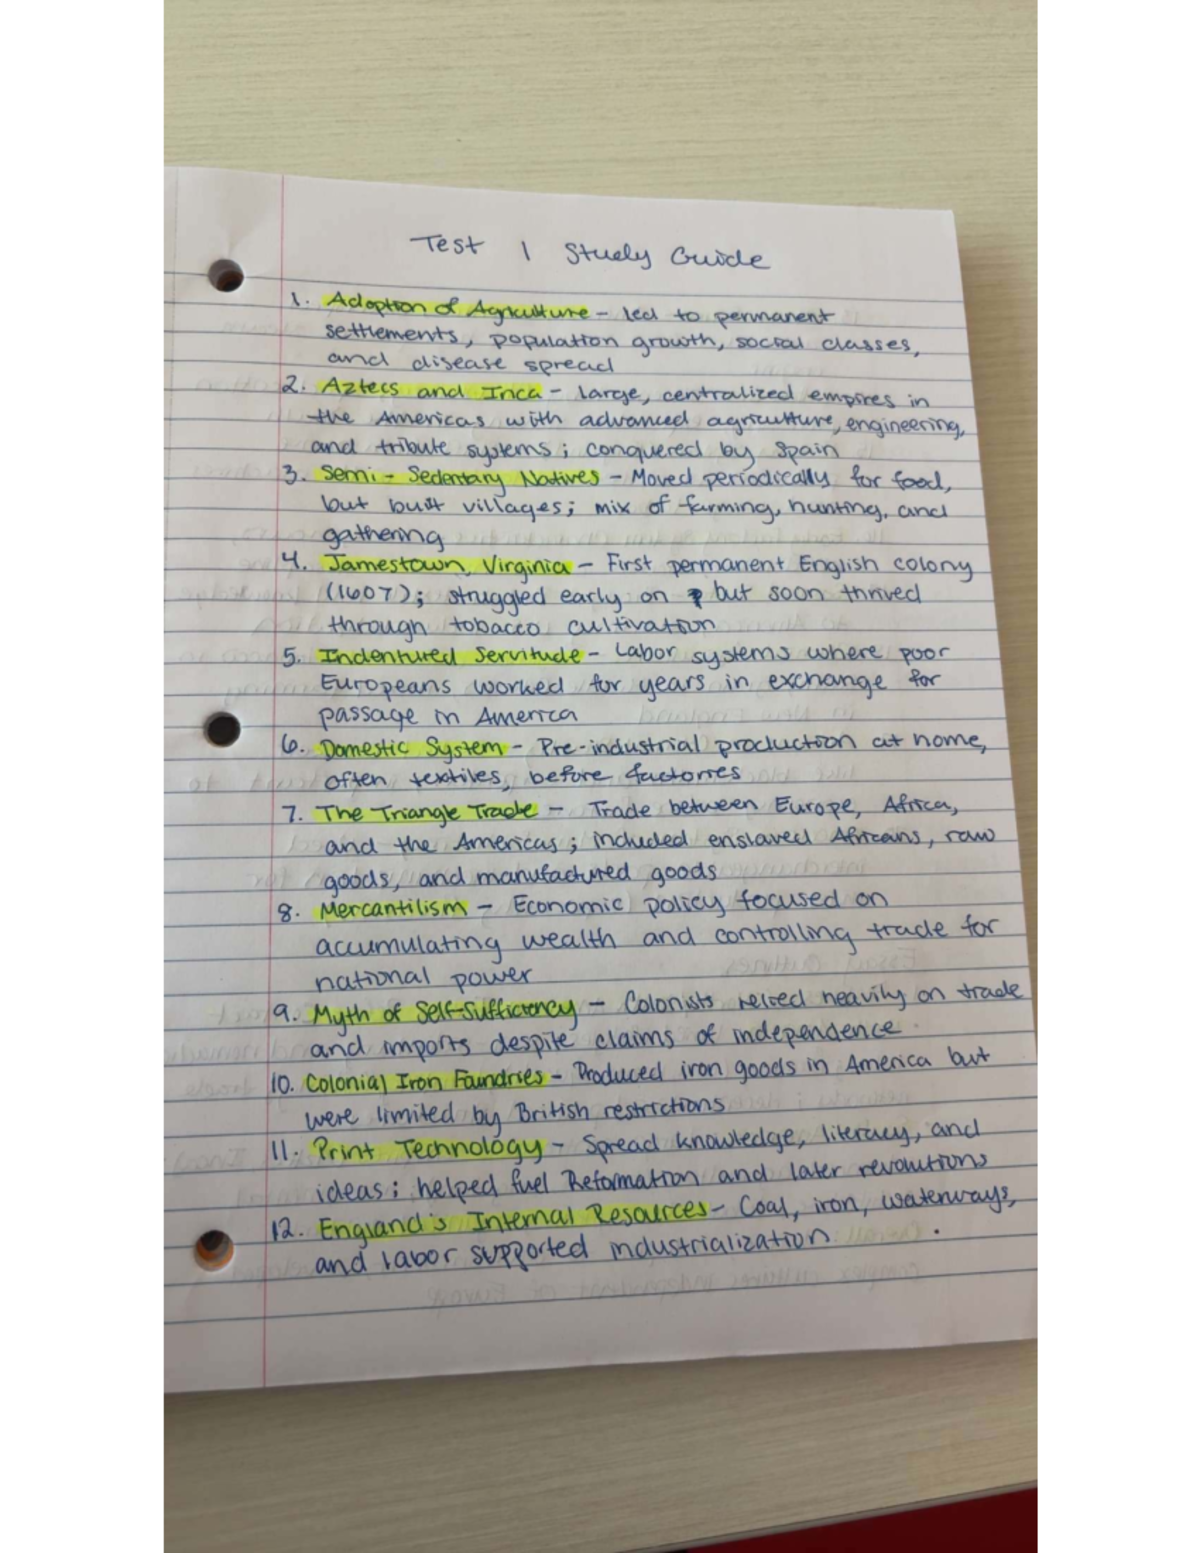 Test 1 Study Guide
1. Adoption of Agriculture - led to permanent
settlements, population growth, social classes,
and disease spread
2. Aztecs and Inca - large, centralized empires in
the Americas with advanced agriculture, engineering,
and tribute systems; conquered by Spain
3. Semi-Sedentary Natives - Moved periodically for food,
but built villages; mix of farming, hunting, and
gathering
4. Jamestown, Virginia - First permanent English colony
(1607); struggled early on but soon thrived
through tobacco cultivation
5. Indentured Servitude - Labor systems where poor
Europeans worked for years in exchange for
passage in America
6. Domestic System - Pre-industrial production at home,
often textiles, before factories
7. The Triangle Trade - Trade between Europe, Africa,
and the Americas; included enslaved Africans, raw
goods, and manufactured goods
8. Mercantilism - Economic policy focused on
accumulating wealth and controlling trade for
national power
9. Myth of Self-Sufficiency - Colonists relied heavily on trade
and imports despite claims of independence
10. Colonial Iron Foundries - Produced iron goods in America but
were limited by British restrictions
11. Print Technology - Spread knowledge, literacy, and
ideas; helped fuel Reformation and later revolutions
12. England's Internal Resources - Coal, iron, waterways,
and labor supported industrialization.